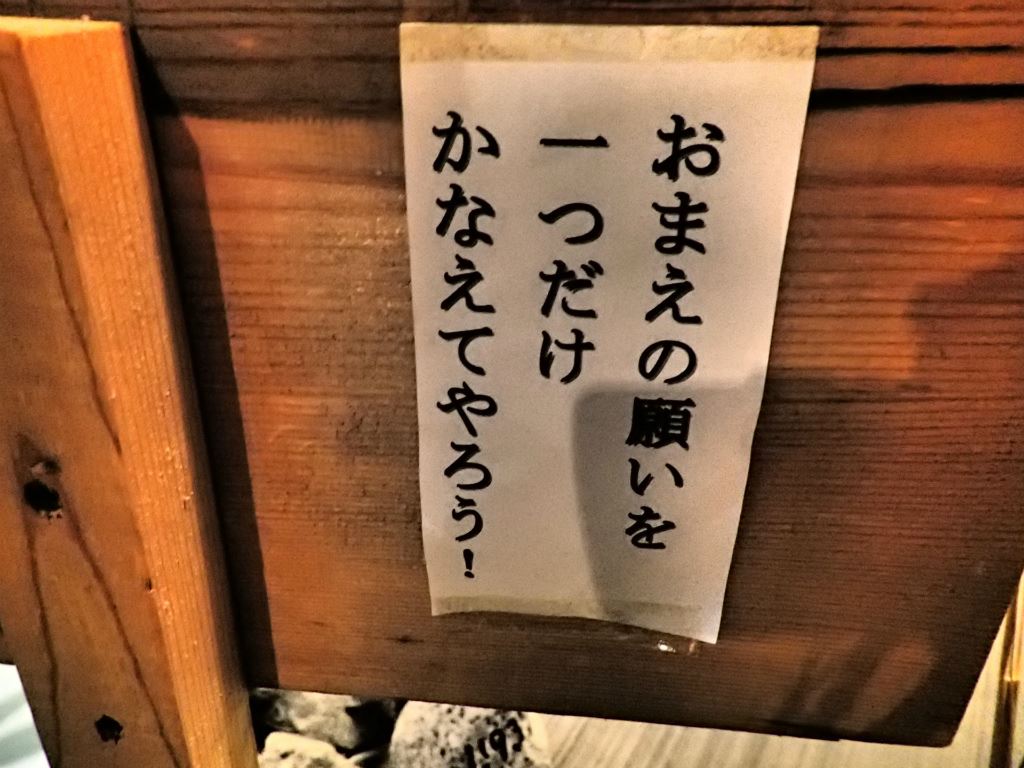 おまえの願いを
一つだけ
かなえてやろう!